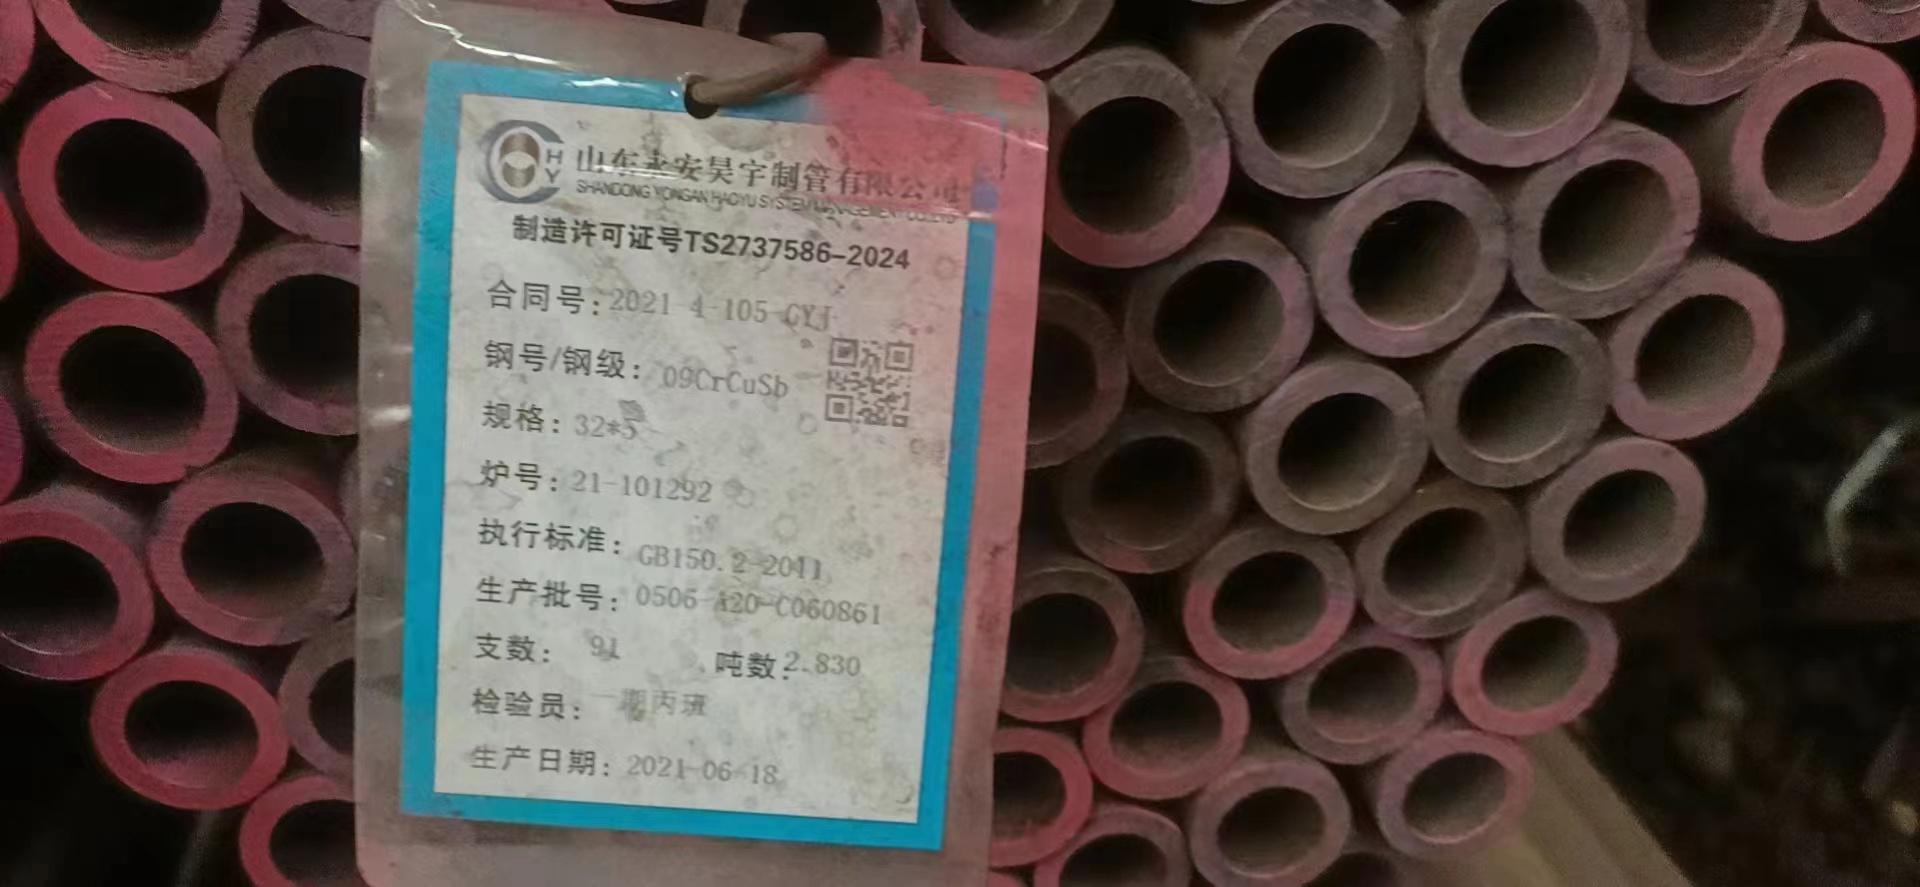 HY
山东永安昊宇制管有限公司
SHANDONG YONGAN HAOYU SYSTEM MANAGEMENT CO.,LTD
制造许可证号TS2737586-2024
合同号:2021-4-105-CYJ
钢号/钢级: 09CrCuSb
规格: 32*5
炉号: 21-101292
执行标准: GB150.2-2011
生产批号: 0506-A20-C060861
支数: 91 吨数: 2.830
检验员: 一期丙班
生产日期: 2021-06-18